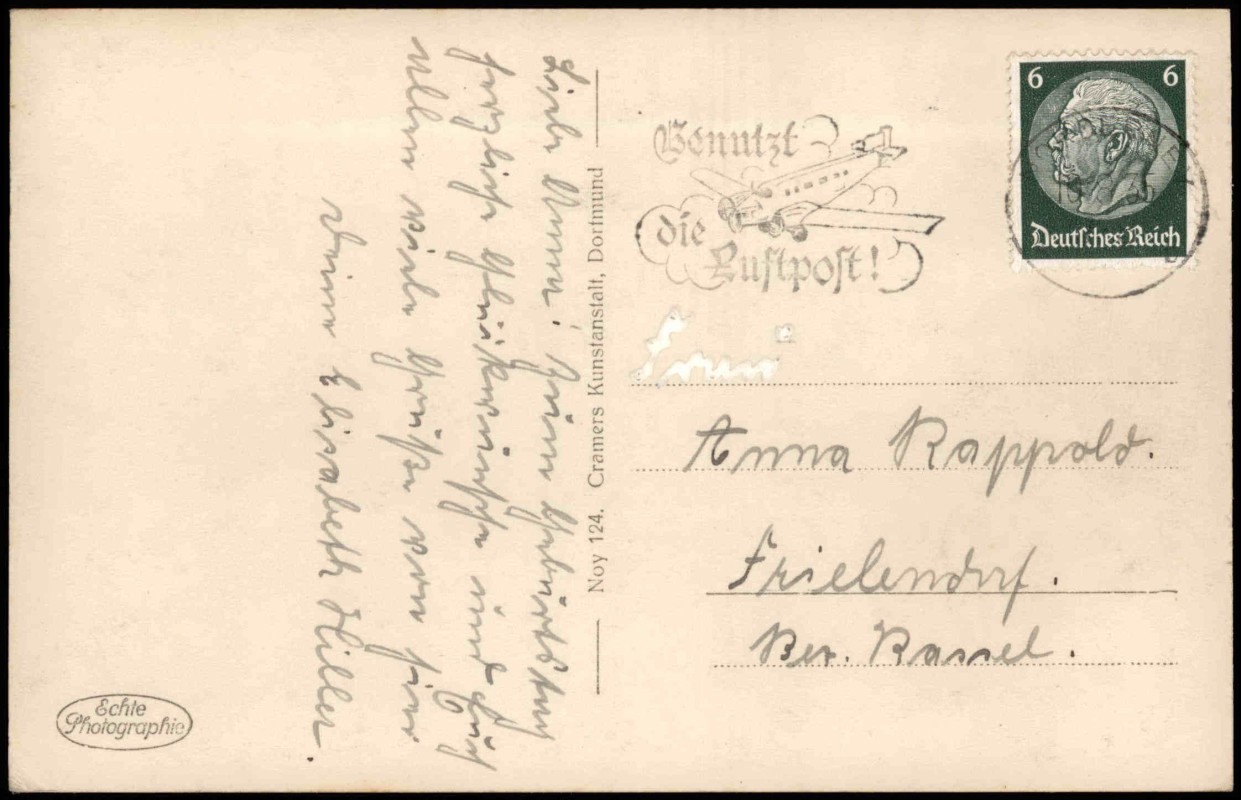 Liebe Anna! Zum Geburtstag
herzliche Glückwünsche und
Allen viele Grüße von hier
Deine Elisabeth Hiller.
Noy 124. Cramers Kunstanstalt, Dortmund
Echte
Photographie
Benutzt
die
Luftpost!
6 6
Deutsches Reich
Anna Rappold.
Frielendorf.
Bez. Kassel.